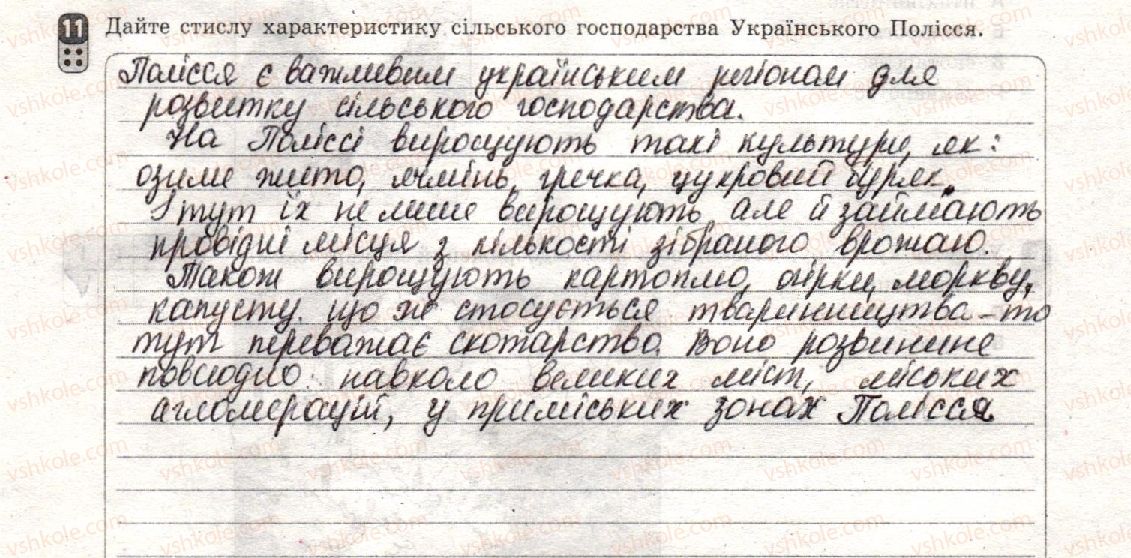 11 Дайте стислу характеристику сільського господарства Українського Полісся.
Полісся є важливим українським регіоном для
розвитку сільського господарства.
На Поліссі вирощують такі культури, як:
озиме жито, ячмінь, гречка, цукровий буряк.
І тут їх не лише вирощують, але й займають
провідні місця з кількості зібраного врожаю.
Також вирощують картоплю, огірки, моркву,
капусту. що ж стосується тваринництва – то
тут переважає скотарство. Воно розвинине
повсюдно навколо великих міст, міських
агломерацій, у приміських зонах Полісся